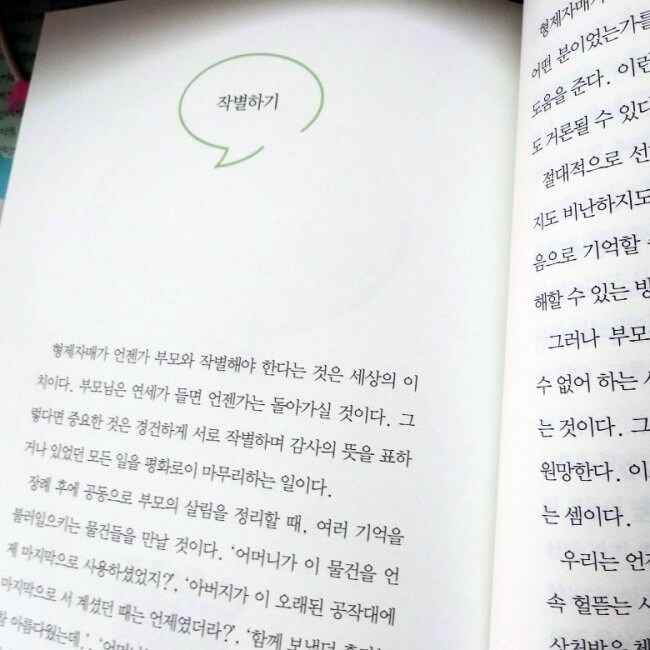 작별하기
형제자매가 언젠가 부모와 작별해야 한다는 것은 세상의 이
치이다. 부모님은 연세가 들면 언젠가는 돌아가실 것이다. 그
렇다면 중요한 것은 경건하게 서로 작별하며 감사의 뜻을 표하
거나 있었던 모든 일을 평화로이 마무리하는 일이다.
장례 후에 공동으로 부모의 살림을 정리할 때, 여러 기억을
불러일으키는 물건들을 만날 것이다. ‘어머니가 이 물건을 언
제 마지막으로 사용하셨었지?’, ‘아버지가 이 오래된 공작대에
마지막으로 서 계셨던 때는 언제였더라?’, ‘함께 보냈던
아름다웠는데.’, ‘어머니
형제자매가
어떤 분이었는가를
도움을 준다. 이런
도 거론될 수 있다
절대적으로 선
지도 비난하지도
음으로 기억할
해할 수 있는 방
그러나 부모
수 없어 하는
는 것이다. 그
원망한다. 이
는 셈이다.
우리는 언
속 헐뜯는
상처받은